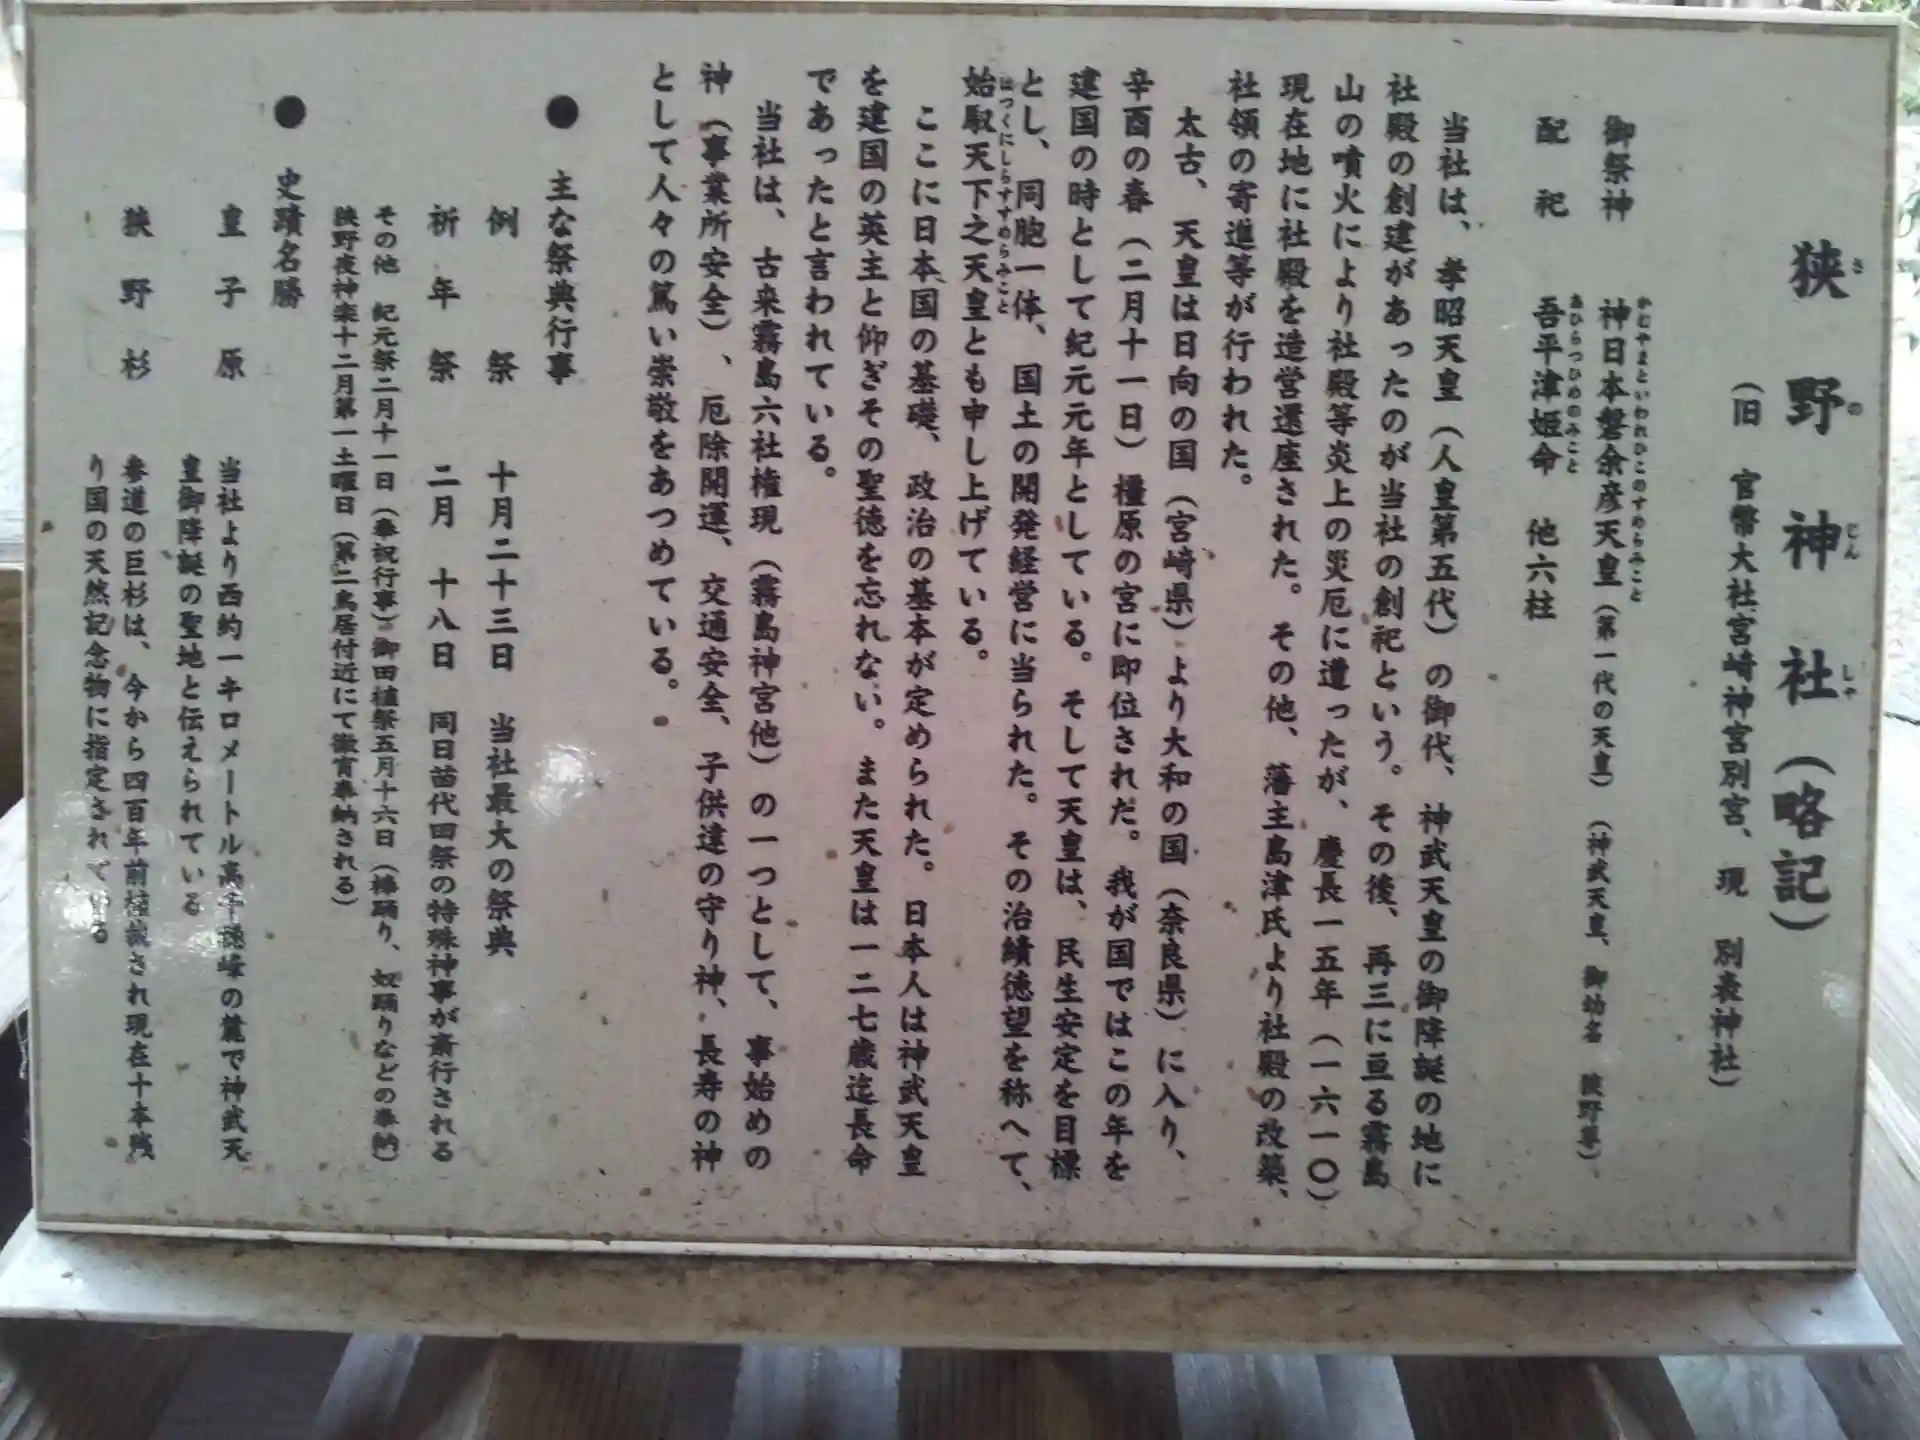 狭野神社(略記)
さのじんしゃ
(旧 官幣大社宮崎神宮別宮、現 別表神社)
御祭神 神日本磐余彦天皇(第一代の天皇)(神武天皇、御幼名 狭野尊)
かむやまといわれひこのすめらみこと
配祀 吾平津姫命 他六柱
あひらつひめのみこと
当社は、孝昭天皇(人皇第五代)の御代、神武天皇の御降誕の地に
社殿の創建があったのが当社の創祀という。その後、再三に亘る霧島
山の噴火により社殿等炎上の災厄に遭ったが、慶長一五年(一六一〇)
現在地に社殿を造営還座された。その他、藩主島津氏より社殿の改築、
社領の寄進等が行われた。
太古、天皇は日向の国(宮崎県)より大和の国(奈良県)に入り、
辛酉の春(二月十一日)橿原の宮に即位されだ。我が国ではこの年を
建国の時として紀元元年としている。そして天皇は、民生安定を目標
とし、同胞一体、国土の開発経営に当られた。その治績徳望を称へて、
始馭天下之天皇とも申し上げている。
はつくにしらすすめらみこと
ここに日本国の基礎、政治の基本が定められた。日本人は神武天皇
を建国の英主と仰ぎその聖徳を忘れない。また天皇は一二七歳迄長命
であったと言われている。
当社は、古来霧島六社権現(霧島神宮他)の一つとして、事始めの
神(事業所安全)、厄除開運、交通安全、子供達の守り神、長寿の神
として人々の篤い崇敬をあつめている。
● 主な祭典行事
例祭 十月二十三日 当社最大の祭典
祈年祭 二月 十八日 同日苗代田祭の特殊神事が斎行される
その他 紀元祭二月十一日(奉祝行事)御田植祭五月十六日(棒踊り、奴踊りなどの奉納)
狭野夜神楽十二月第一土曜日(第二鳥居付近にて徹宵奉納される)
● 史蹟名勝
皇子原 当社より西約一キロメートル高千穂峰の麓で神武天
皇御降誕の聖地と伝えられている
狭野杉 参道の巨杉は、今から四百年前植栽され現在十本残
り国の天然記念物に指定されている